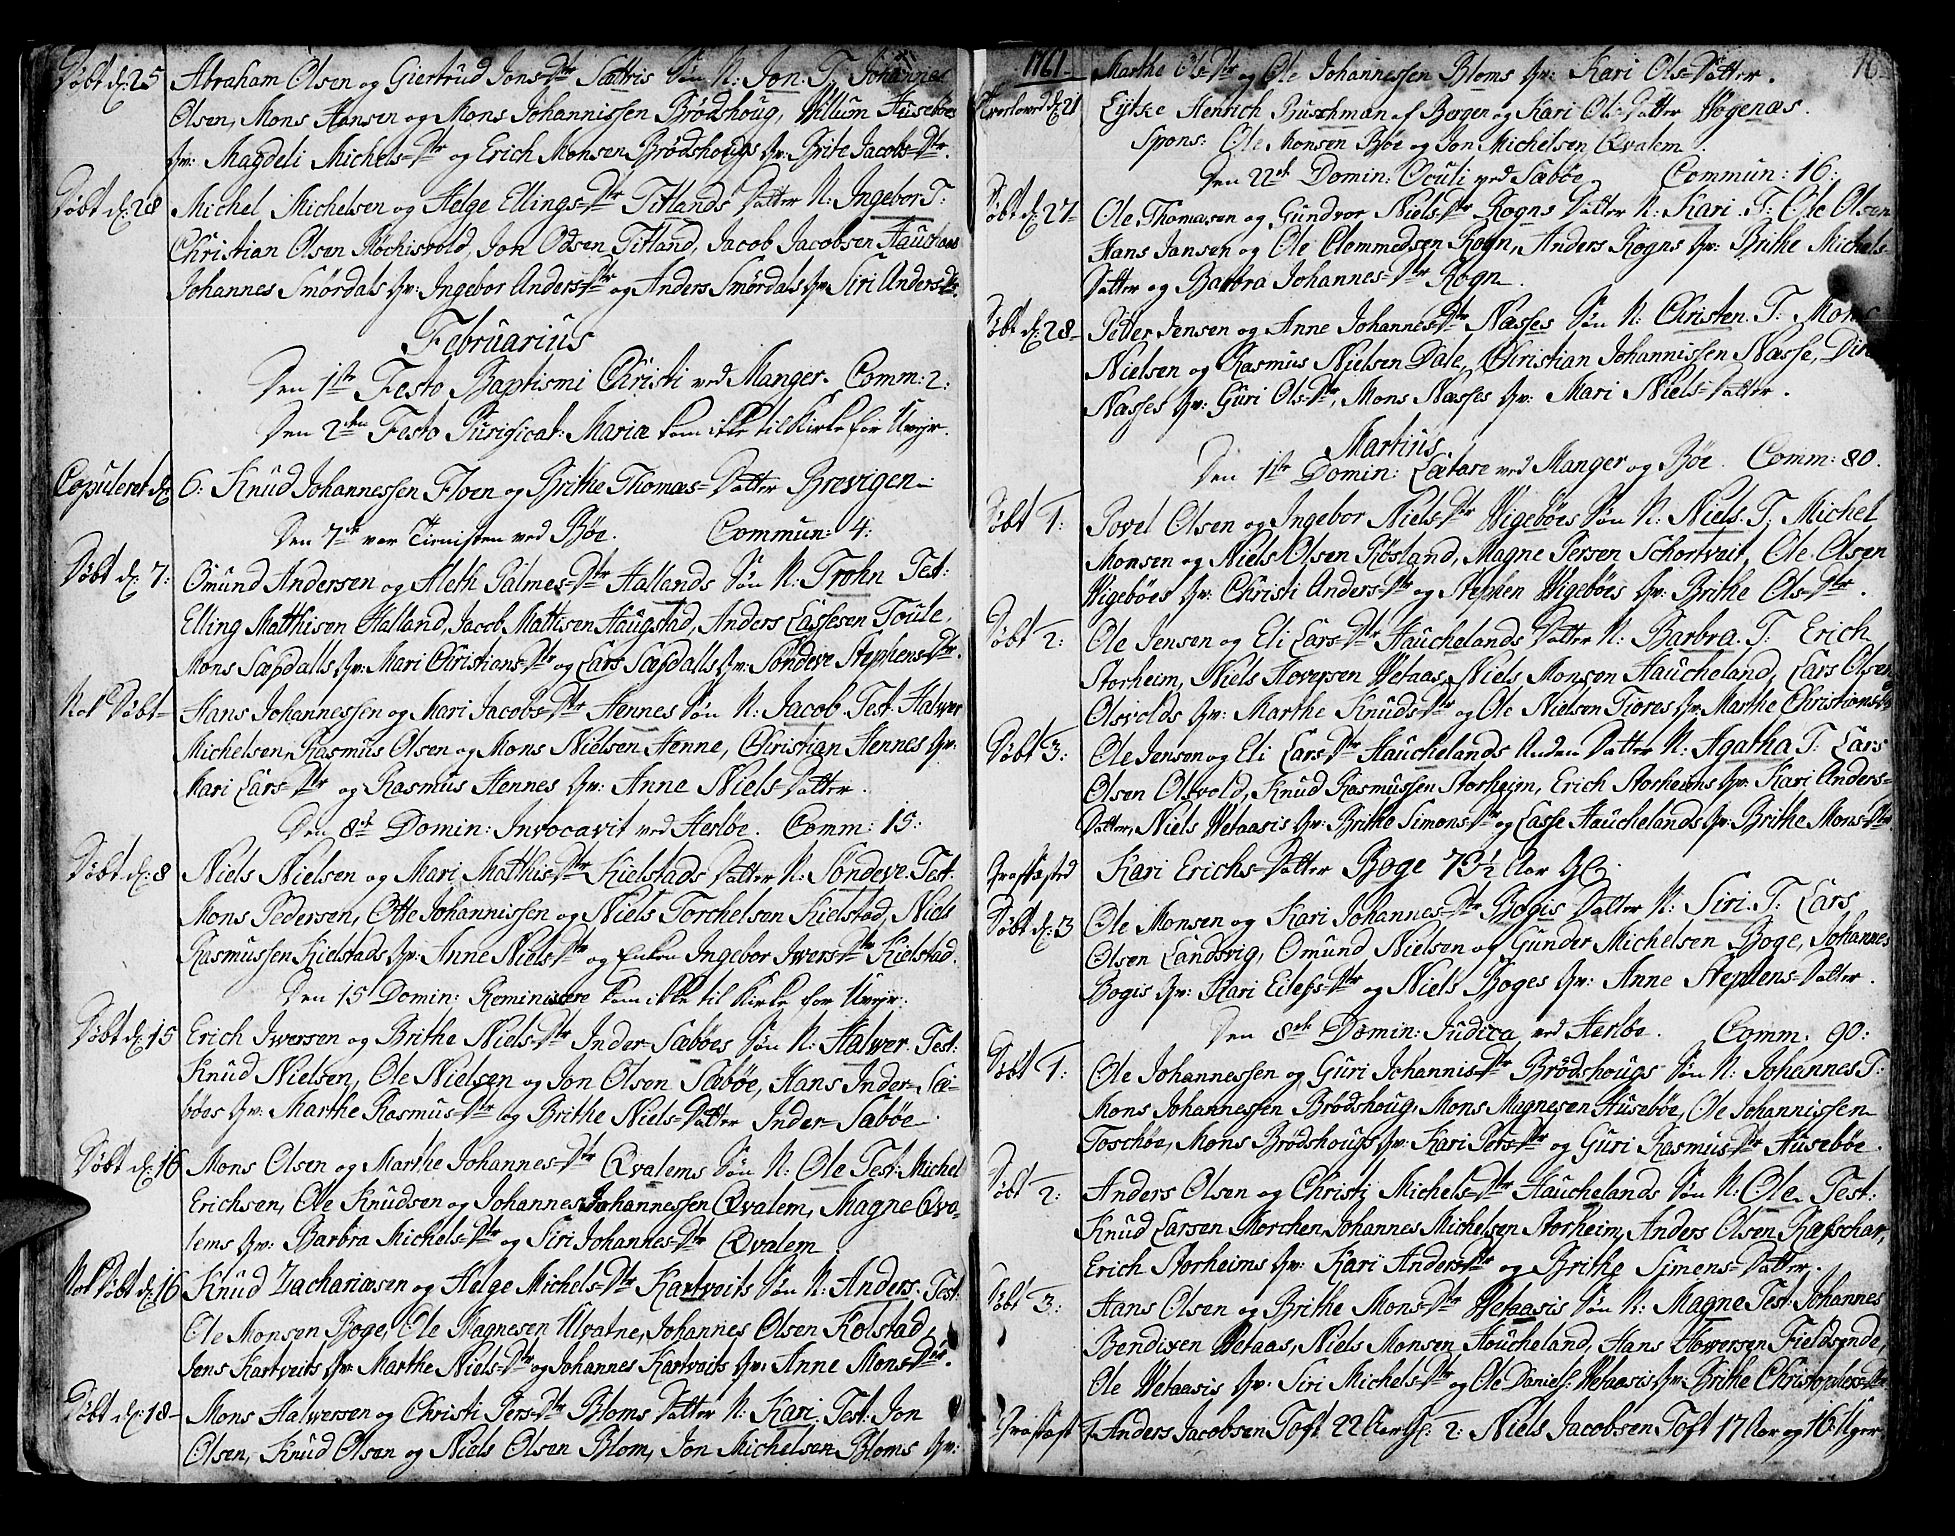 Døbt d: 25 Abraham Olsen og Giertrud Jons-Dtr Sættris Søn N: Jon. T: Johannes
Olsen, Mons Hansen og Mons Johannissen Brødshoug, Willum Husebøes
Qv: Magdeli Michels-Dtr og Erich Monsen Brødshougs Qv: Brite Jacobs-Dtr.
Døbt d: 28 Michel Michelsen og Helge Ellings-Dtr Titlands Datter N: Ingebor T:
Christian Olsen Kochisvold, Jon Odsen Titland, Jacob Jacobsen
Johannes Smørdals Qv: Ingebor Anders-Dtr og Anders Smørdals Qv: Siri Anders-Dtr.
Februarius
Den 1ste Festo Baptismi Christi ved Manger. Comm: 2:
Den 2den Festo Purificat: Mariæ kom ikke til Kirke for Uveyr.
Copuleret d: 6: Knud Johannessen Floen og Brithe Thomæs-Datter Brevigen
Den 7de var Tienisten ved Bøe. Commun: 4:
Døbt d: 7: Omund Andersen og Aleth Palmes-Dtr Hallands Søn N: Trohn Test:
Elling Matthisen Halland, Jacob Mattisen Haugstad, Anders Lassesen Toule,
Mons Sæpdalls Qv: Mari Christians-Dtr og Lars Sæpdalls Qv: Søndeve Stephens-Dtr.
Nok Døbt Hans Johannessen og Mari Jacobs-Dtr Hennes Søn N: Jacob Test: Halwer
Michelsen, Rasmus Olsen og Mons Nielsen Henne, Christian Hennes Qv:
Mari Lars-Dtr og Rasmus Hennes Qv: Anne Niels-Datter.
Den 8de Domin: Invocavit ved Herløe. Comm: 15:
Døbt d: 8 Niels Nielsen og Mari Mathis-Dtr Kielstads Datter N: Søndeve. Test:
Mons Pedersen, Otte Johannissen og Niels Torchelsen Kielstad, Niels
Rasmussen Kielstads Qv: Anne Niels-Dtr og Enken Ingebor Iwers-Dtr Kielstad.
Den 15 Domin: Reminiscere kom ikke til Kirke for Uveyr.
Døbt d: 15 Erich Iwersen og Brithe Niels-Dtr Inder-Sæbøes Søn N: Halwer. Test:
Knud Nielsen, Ole Nielsen og Jon Olsen Sæbøe, Hans Inder-Sæ-
bøes Qv: Marthe Rasmus-Dtr og Brithe Niels-Datter Inder-Sæbøe
Døbt d: 16 Mons Olsen og Marthe Johannes-Dtr Qvalems Søn N: Ole Test: Michel
Erichsen, Ole Knudsen og Johannes Johannessen Qvalem, Magne Qva-
lems Qv: Barbra Michels-Dtr og Siri Johannes-Dtr Qvalem
Nok Døbt d: 16 Knud Zachariæsen og Helge Michels-Dtr Kartveits Søn N: Anders. Test:
Ole Monsen Boge, Ole Magnesen Ulvatne, Johannes Olsen Kolstad,
Jens Kartveits Qv: Marthe Niels-Dtr og Johannes Kartveits Qv: Anne Mons-Dtr.
Døbt d: 18 Mons Halversen og Christi Pers-Dtr Bloms Datter N: Kari. Test: Jon
Olsen, Knud Olsen og Niels Olsen Blom, Jon Michelsen Bloms Qv:
1761 Marthe Ols-Dtr og Ole Johannessen Bloms Qv: Kari Ols-Datter. 16
Trolowed d: 21 Eytke Henrich Buschman af Bergen og Kari Ols-Datter Høgenæs.
Spons: Ole Monsen Bøe og Jon Michelsen Qvalem
Den 22de Domin: Oculi ved Sæbøe Commun: 16:
Døbt d: 27 Ole Thomæsen og Gundvor Niels-Dtr Rogns Datter N: Kari. T: Ole Olsen
Hans Jansen og Ole Clemmedsen Rogn, Anders Rogns Qv: Brithe Michels-
Datter og Barbra Johannes-Dtr Rogn
Døbt d: 28 Peter Jensen og Anne Johannes-Dtr Næsses Søn N: Christen. T: Mons
Nielsen og Rasmus Nielsen Dale, Christian Johannissen Næsse,
Næsses Qv: Guri Ols-Dtr, Mons Næsses Qv: Mari Niels-Datter.
Martius
Den 1ste Domin: Lætare ved Manger og Bøe. Comm: 80.
Døbt 1: Povel Olsen og Ingebor Niels-Dtr Wigebøes Søn N: Niels. T: Michel
Monsen og Niels Olsen Røsland, Magne Persen Schortveit, Ole Olsen
Wigebøes Qv: Christi Anders-Dtr og Stephen Wigebøes Qv: Brithe Ols-Dtr.
Døbt 2: Ole Jensen og Eli Lars-Dtr Hauchelands Datter N: Barbra. T: Erich
Storheim, Niels Hoversen Wetaas, Niels Monsen Haucheland, Lars Olsen
Olsvolds Qv: Marthe Knuds-Dtr og Ole Nielsen Tiores Qv: Marthe Christians-Dtr
Døbt 3: Ole Jensen og Eli Lars-Dtr Hauchelands Anden Datter N: Agatha T: Lars
Olsen Olsvold, Knud Rasmussen Storheim, Erich Storheims Qv: Kari Anders-
Datter, Niels Wetaasis Qv: Brithe Simons-Dtr og Lasse Hauchelands Qv: Brithe Mons-Dtr
Graffæsted Kari Erichs-Datter Boge 73½ Aar Gl:
Døbt d: 3 Ole Monsen og Kari Johannes-Dtr Bogis Datter N: Siri. T: Lars
Olsen Landsvig, Omund Nielsen og Gunder Michelsen Boge, Johannes
Bogis Qv: Kari Eilefs-Dtr og Niels Boges Qv: Anne Stephens-Datter.
Den 8de Domin: Judica ved Herløe. Comm: 90:
Døbt 1: Ole Johannessen og Guri Johannis-Dtr Brødshougs Søn N: Johannes T:
Mons Johannessen Brødshoug, Mons Magnesen Husebøe, Ole Johannissen
Toschøe, Mons Brødshougs Qv: Kari Pers-Dtr og Guri Rasmus-Dtr Husebøe.
Døbt 2: Anders Olsen og Christj Michels-Dtr Hauchelands Søn N: Ole. Test:
Knud Larsen Morchen, Johannes Michelsen Storheim, Anders Olsen Ræsschar,
Erich Storheims Qv: Kari Anders-Dtr og Brithe Simens-Datter.
Døbt 3: Hans Olsen og Brithe Mons-Dtr Wetaasis Søn N: Magne Test: Johannes
Bendixen Wetaas, Niels Monsen Haucheland, Hans Howersen Fieldsende,
Ole Wetaasis Qv: Siri Michels-Dtr og Ole Daniels: Wetaasis Qv: Brithe Christophers-Dtr
Graffæst 1 Anders Jacobsen Toft 22 Aar Gl: 2: Niels Jacobsen Toft 17 Aar og 16 Uger